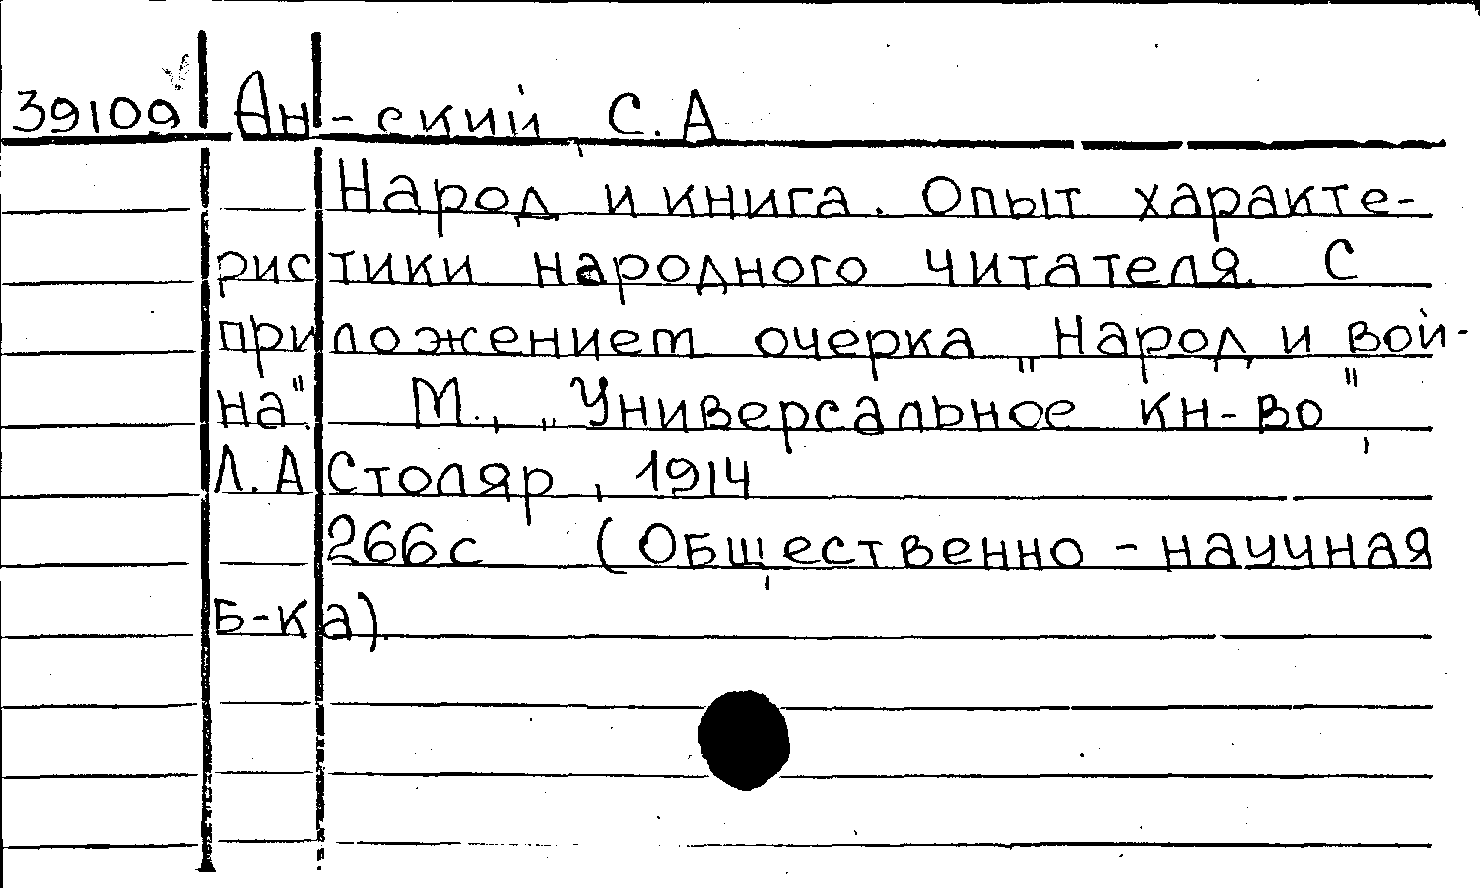 39109 Ан-ский С. А
Народ и книга. Опыт характе-
ристики народного читателя. С
приложением очерка „Народ и вой-
на". М., „Универсальное кн-во",
Л. А Столяр, 1914
266 с (Общественно-научная
Б-ка).